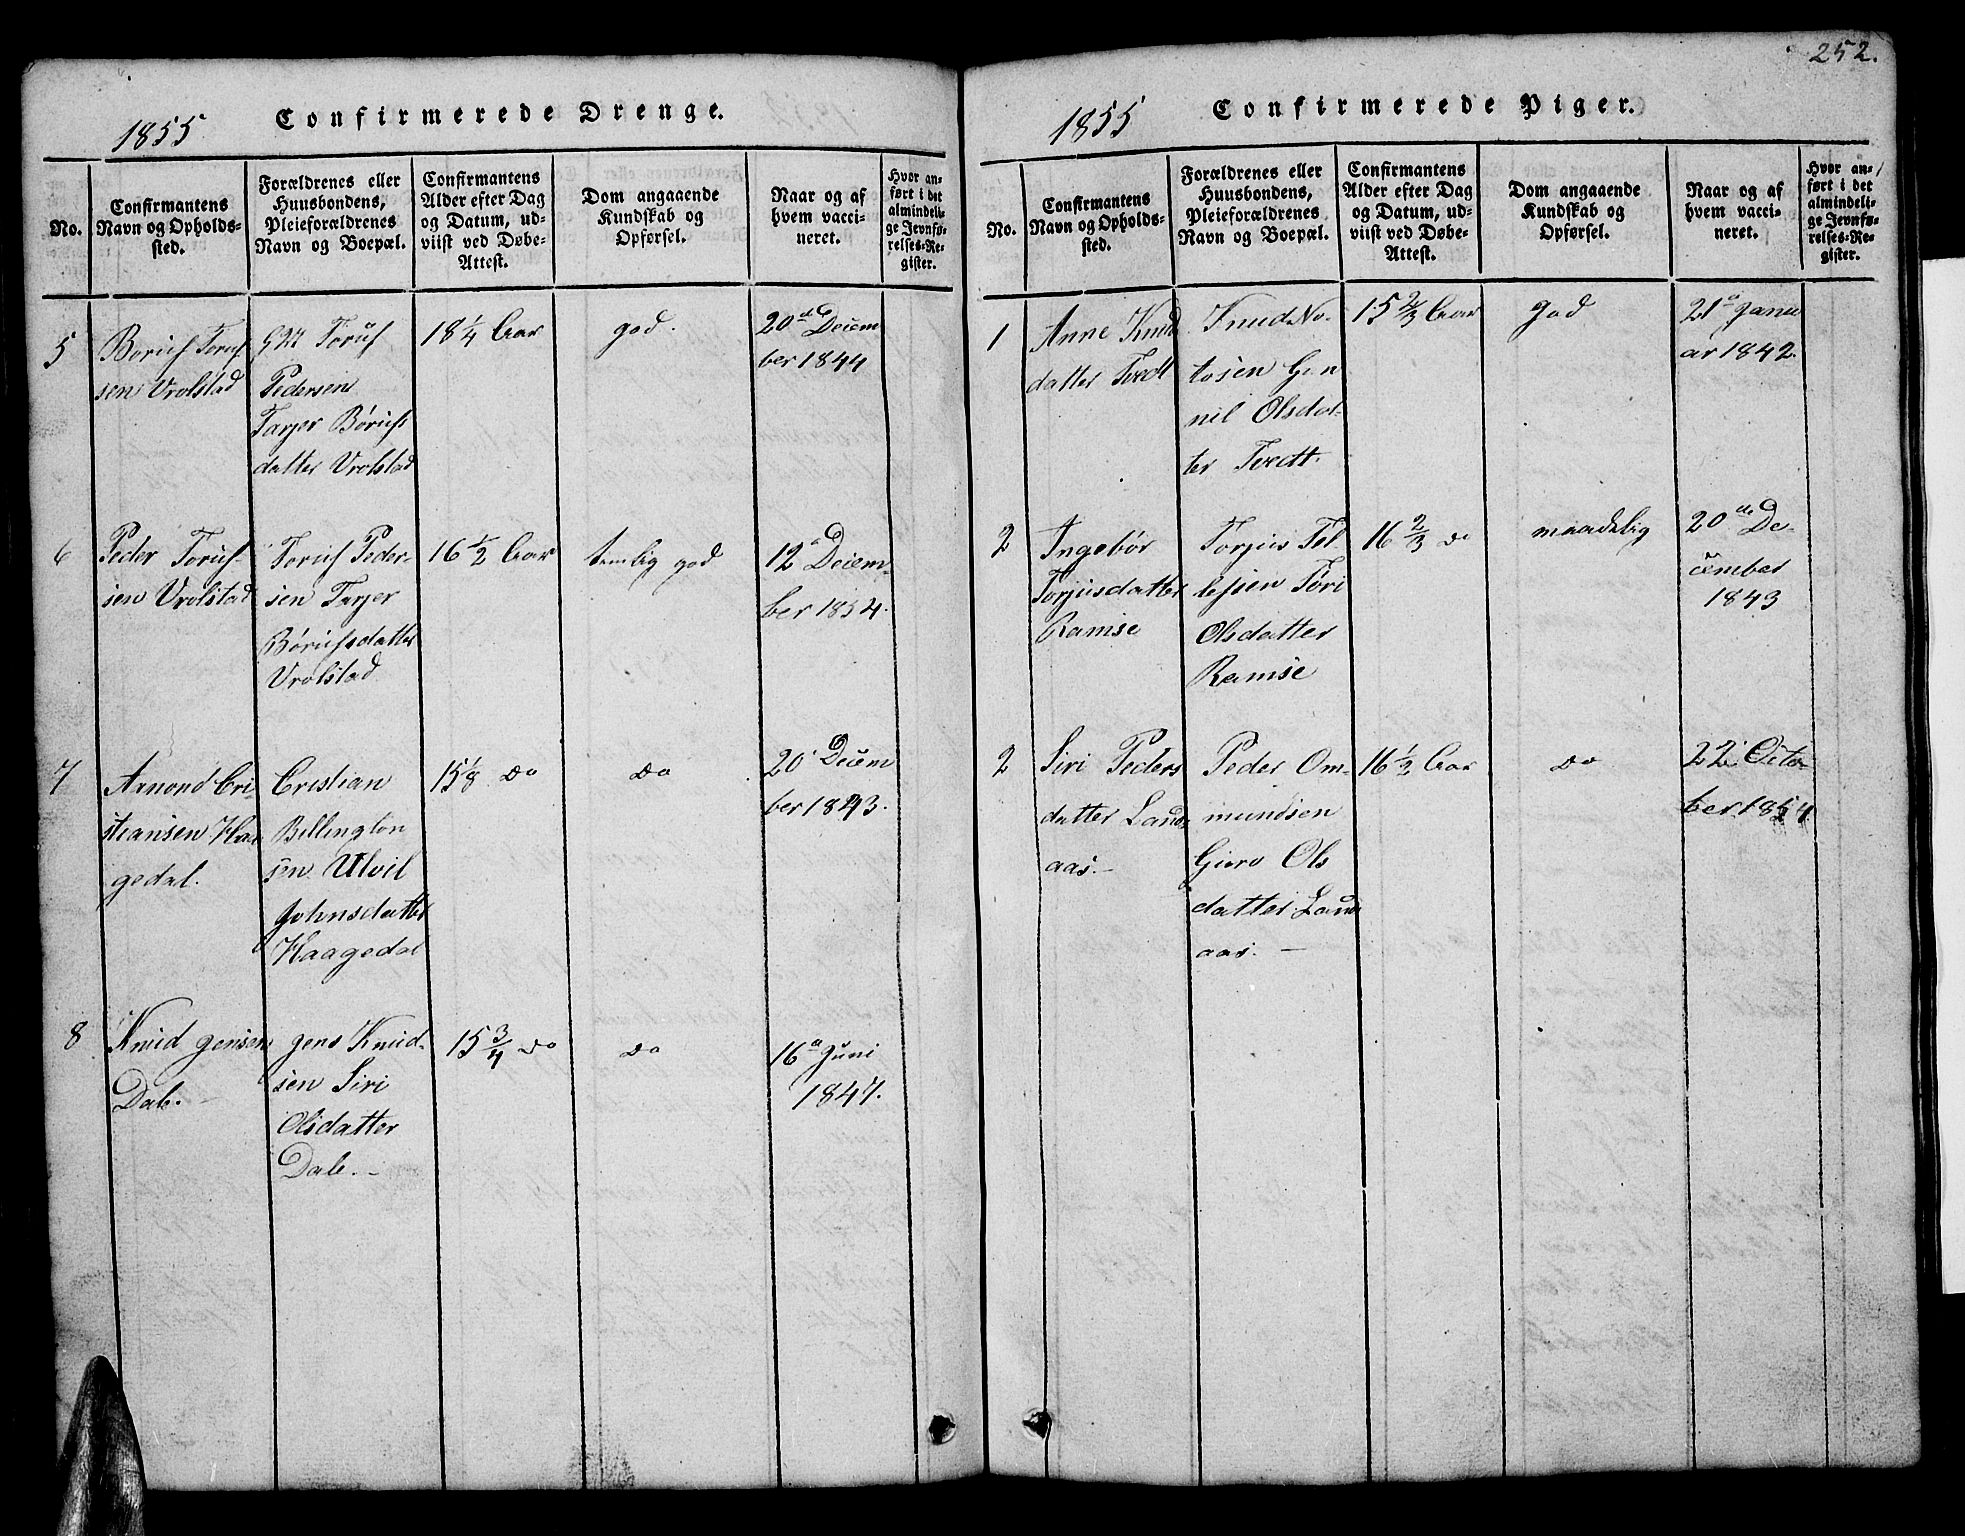 252.
1855 Confirmerede Drenge.
No.
Confirmantens
Navn og Opholds-
sted.
Forældrenes eller
Huusbondens,
Pleieforældrenes
Navn og Boepæl.
Confirmantens
Alder efter Dag
og Datum, ud-
viist ved Døbe-
Attest.
Dom angaaende
Kundskab og
Opførsel.
Naar og af
hvem vacci-
neret.
Hvor an-
ført i det
almindeli-
ge Jevnfø-
relses-Re-
gister.
5
Boruf Toruf
sen Vrolstad
Toruf
Pedersen
Tarjer Børufs
datter Vrolstad
18 1/4 Aar
god.
20de Decem
ber 1844
6
Peder Toruf-
sen Vrolstad
Toruf Peder-
sen Tarjer
Børufsdatter
Vrolstad
16 1/2 Aar
temlig god
12 Decem-
ber 1854.
7
Amond Cri-
stiansen Haa
gedal.
Cristian
Billington
sen Ulvil
Johnsdatter
Haagedal
15 1/8 Do
Do
20 Decem
ber 1843.
8
Knud Jensen
Dale.
Jens Knud-
sen Siri
Olsdatter
Dale.
15 3/4 Do
Do
16 Juni
1847.
1855 Confirmerede Piger.
No.
Confirmantens
Navn og Opholds-
sted.
Forældrenes eller
Huusbondens,
Pleieforældrenes
Navn og Boepæl.
Confirmantens
Alder efter Dag
og Datum, ud-
viist ved Døbe-
Attest.
Dom angaaende
Kundskab og
Opførsel.
Naar og af
hvem vacci-
neret.
Hvor an-
ført i det
almindeli-
ge Jevnfø-
relses-Re-
gister.
1
Anne Knud
datter Tvedt
Knud No-
tosen Gun
nil Olsdat-
ter Tvedt.
15 2/3 Aar
god
21 Janu
ar 1842.
2
Ingebør
Torjusdatter
Ramse
Torjus Tel
lefsen Töri
Olsdatter
Ramse
16 2/3 Do
maadelig
20de De-
cember
1843
2
Siri Peders
datter Land
aas.
Peder Om-
mundsen
Gjero Ols
datter Land
aas.
16 1/2 Aar
Do
22 Octo-
ber 1854